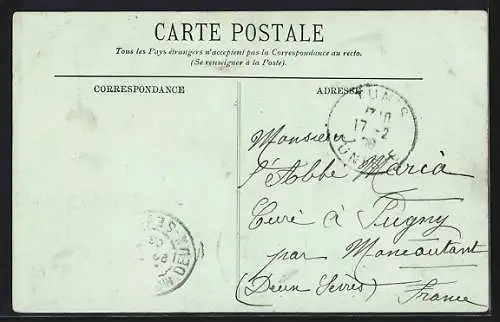 CARTE POSTALE
Tous les Pays étrangers n'acceptent pas la Correspondance au recto.
(Se renseigner à la Poste).
CORRESPONDANCE
ADRESSE
TUNIS
17-2
Monsieur
l'Abbé Maria
Curé à Pugny
par Moncoutant
(Deux Sèvres)
France